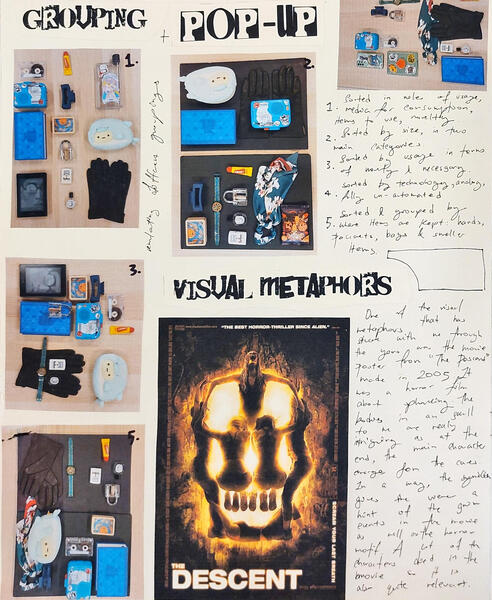 GROUPING + POP-UP
1.
2.
3.
5.
emulating different groupings
1. Sorted in roles of usage, media for consumption, items to use, novelty
2. Sorted by size, in two main categories
3. Sorted by usage in terms of novelty & necessary.
4. Sorted by technology, analog, fully un-automated
5. Sorted & grouped by where items are kept: hands, pockets, bags & smaller items.
VISUAL METAPHORS
"THE BEST HORROR-THRILLER SINCE ALIEN."
THE
DESCENT
SCREAM YOUR LAST BREATH
One of the visual
metaphors that has
stuck with me through
the years are the movie
poster from "The Descend"
made in 2005. It
was a horror film
about
the
in an skull
to me are really
intriguing as at the
end, the main character
emerge from the caves
In a way, the symbolism
gives the viewer a
hint of the
events in the movie
as well as the horror
motif. A lot of the
characters died in the
movie so it is
also quite relevant.